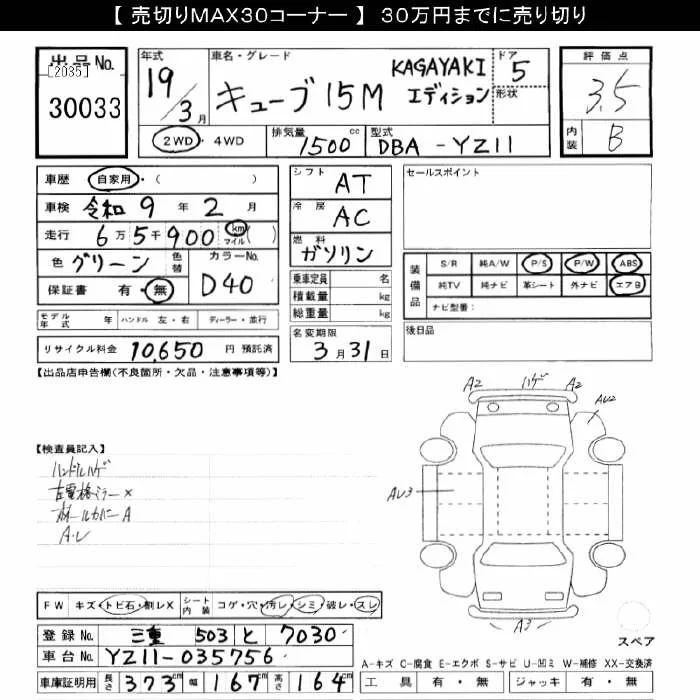 【 売切りMAX30コーナー 】 30万円までに売り切り
出品No. [2035] 30033
年式 19/3月
車名・グレード キューブ 15M KAGAYAKI エディション
ドア形状 5
評価点 3.5
内装 B
2WD ・ 4WD
排気量 1500 cc
型式 DBA - YZ11
車歴 自家用 ・( )
車検 令和 9 年 2 月
走行 6 万 5 千 900 km マイル ( )
色 グリーン 色替 カラーNo. D40
保証書 有 ・ 無
モデル年式 年 ハンドル 左 ・ 右 ディーラー ・ 並行
リサイクル料金 10,650 円 預託済
シフト AT
冷房 AC
燃料 ガソリン
乗車定員 名
積載量 kg
総重量 kg
名変期限 3 月 31 日
セールスポイント
装備品 S/R 純A/W P/S P/W ABS
純TV 純ナビ 革シート 外ナビ エアB
ナビ型番:
後日品
【出品店申告欄(不良箇所・欠品・注意事項等)】
【検査員記入】
ハンドルハゲ
左電格ミラー×
ホイールカバーA
A・U
A2 ハゲ A2
AU2
AU3
A3
スペア
FW キズ・トビ石・割レX シート内装 コゲ・穴・汚レ・シミ・破レ・スレ
登録No. 三重 503 と 7030
車台No. YZ11-035756
車庫証明用 長さ 373 cm 幅 167 cm 高さ 164 cm
A-キズ C-腐食 E-エクボ S-サビ U-凹ミ W-補修 XX-交換済
工具 有 ・ 無 ジャッキ 有 ・ 無